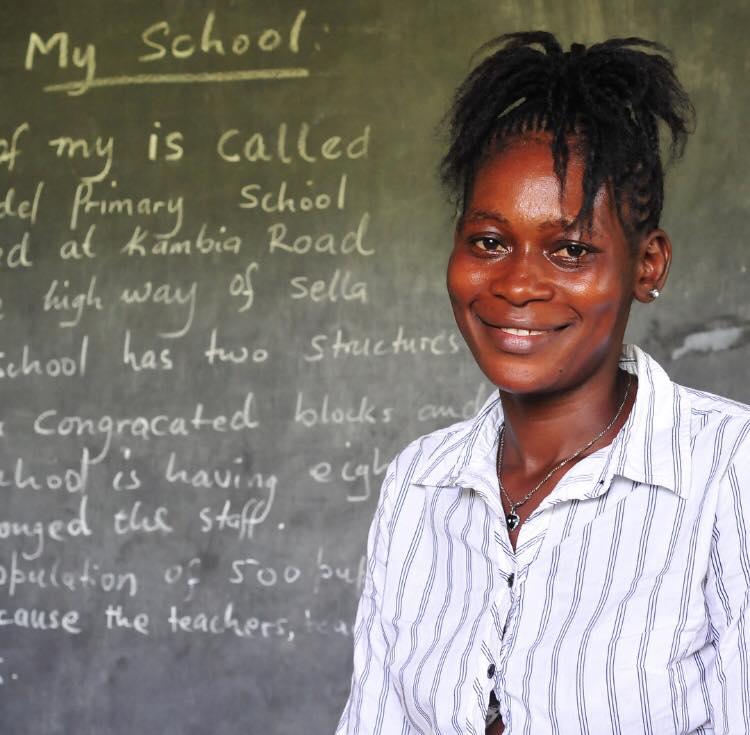 My School:
of my is called
del Primary School
ed at Kambia Road
high way of Sella
School has two structures
congracated blocks and
school is having eigh
onged the staff.
opulation of 500 pup
cause the teachers,